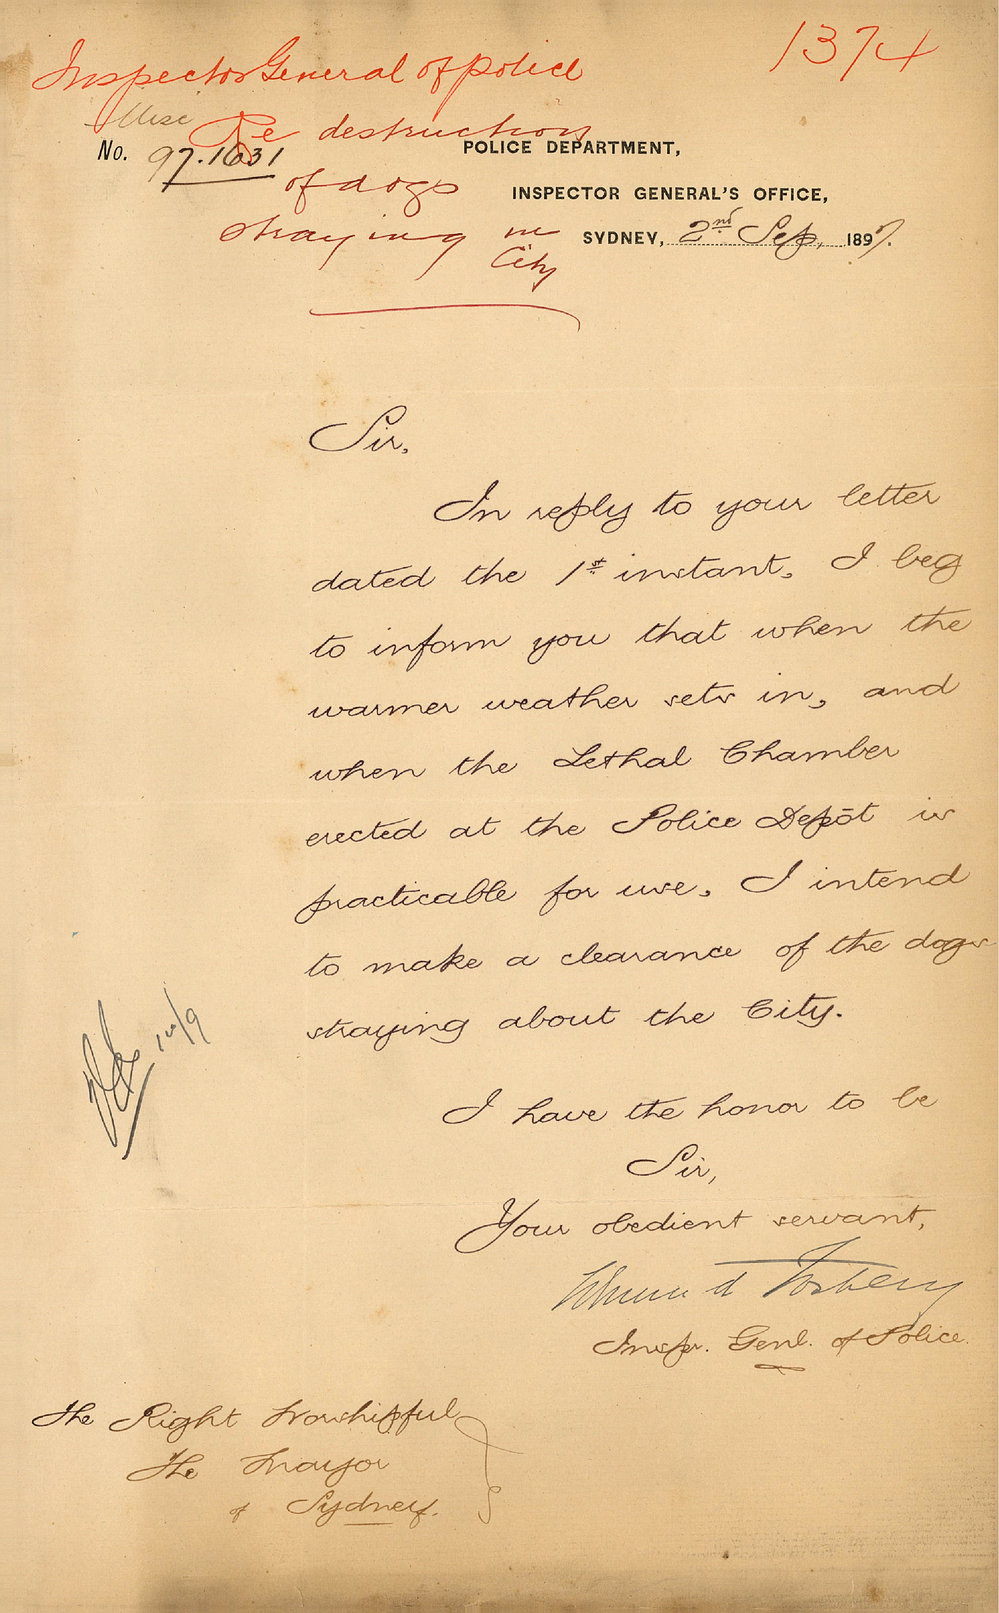 Inspector General of police
1374
Misc
Re destruction
No. 97.1631
POLICE DEPARTMENT,
of dogs
INSPECTOR GENERAL'S OFFICE,
straying in
City
SYDNEY, 2nd Sep, 1897.
Sir,
In reply to your letter
dated the 1st instant, I beg
to inform you that when the
warmer weather sets in, and
when the Lethal Chamber
erected at the Police Depôt is
practicable for use, I intend
to make a clearance of the dogs
straying about the City.
I have the honor to be
Sir,
Your obedient servant,
Edmund Fosbery
Inspr. Genl. of Police.
The Right Worshipful
The Mayor
of Sydney.